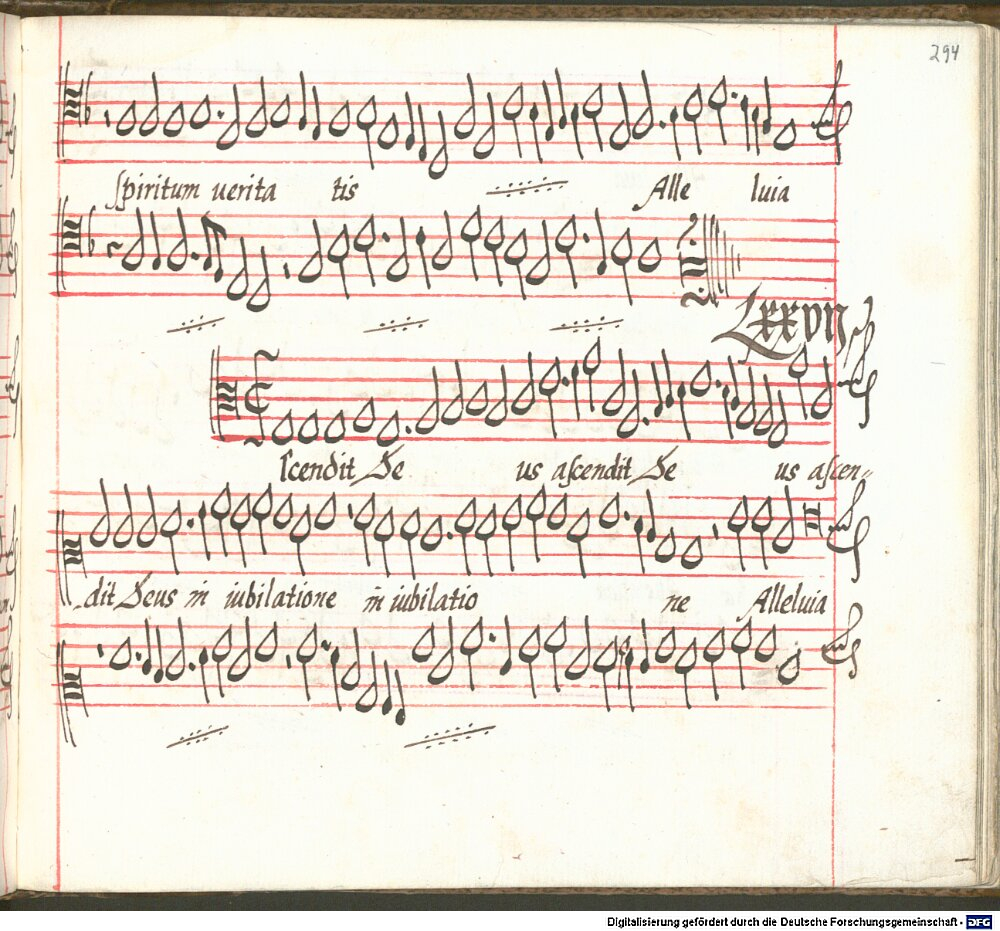 294
spiritum uerita tis Alle luia
Lxxvii
scendit De us ascendit De us ascen-
dit Deus in iubilatione in iubilatio ne Alleluia
Digitalisierung gefördert durch die Deutsche Forschungsgemeinschaft - DFG